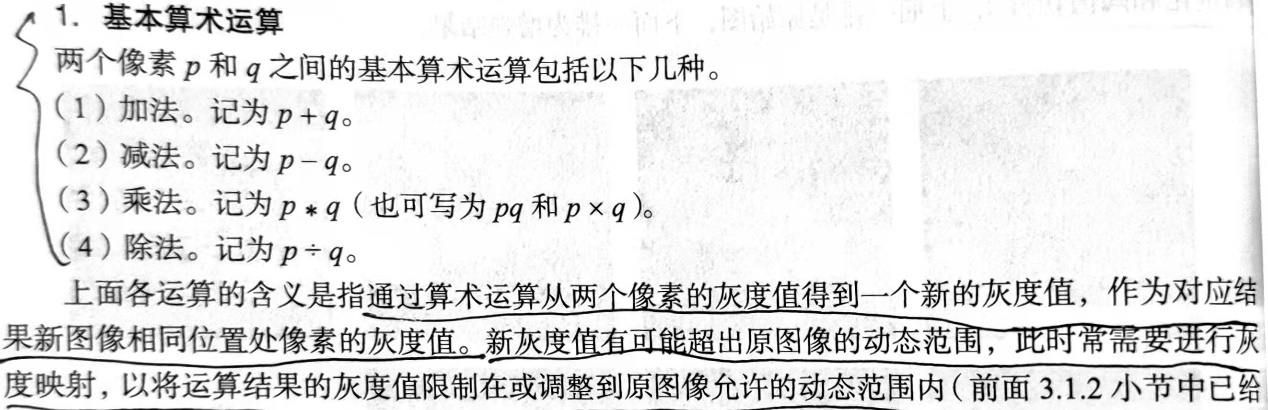 1. 基本算术运算
两个像素 p 和 q 之间的基本算术运算包括以下几种。
（1）加法。记为 p + q。
（2）减法。记为 p − q。
（3）乘法。记为 p * q（也可写为 pq 和 p × q）。
（4）除法。记为 p ÷ q。
上面各运算的含义是指通过算术运算从两个像素的灰度值得到一个新的灰度值，作为对应结
果新图像相同位置处像素的灰度值。新灰度值有可能超出原图像的动态范围，此时常需要进行灰
度映射，以将运算结果的灰度值限制在或调整到原图像允许的动态范围内（前面 3.1.2 小节中已给